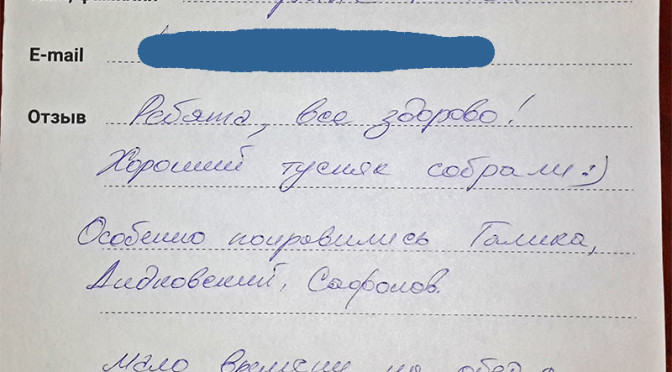 E-mail
Отзыв Ребята, все здорово!
Хороший тусняк собрали :)
Особенно понравились Галика,
Дидковский, Сафонов.
Мало времени на обед